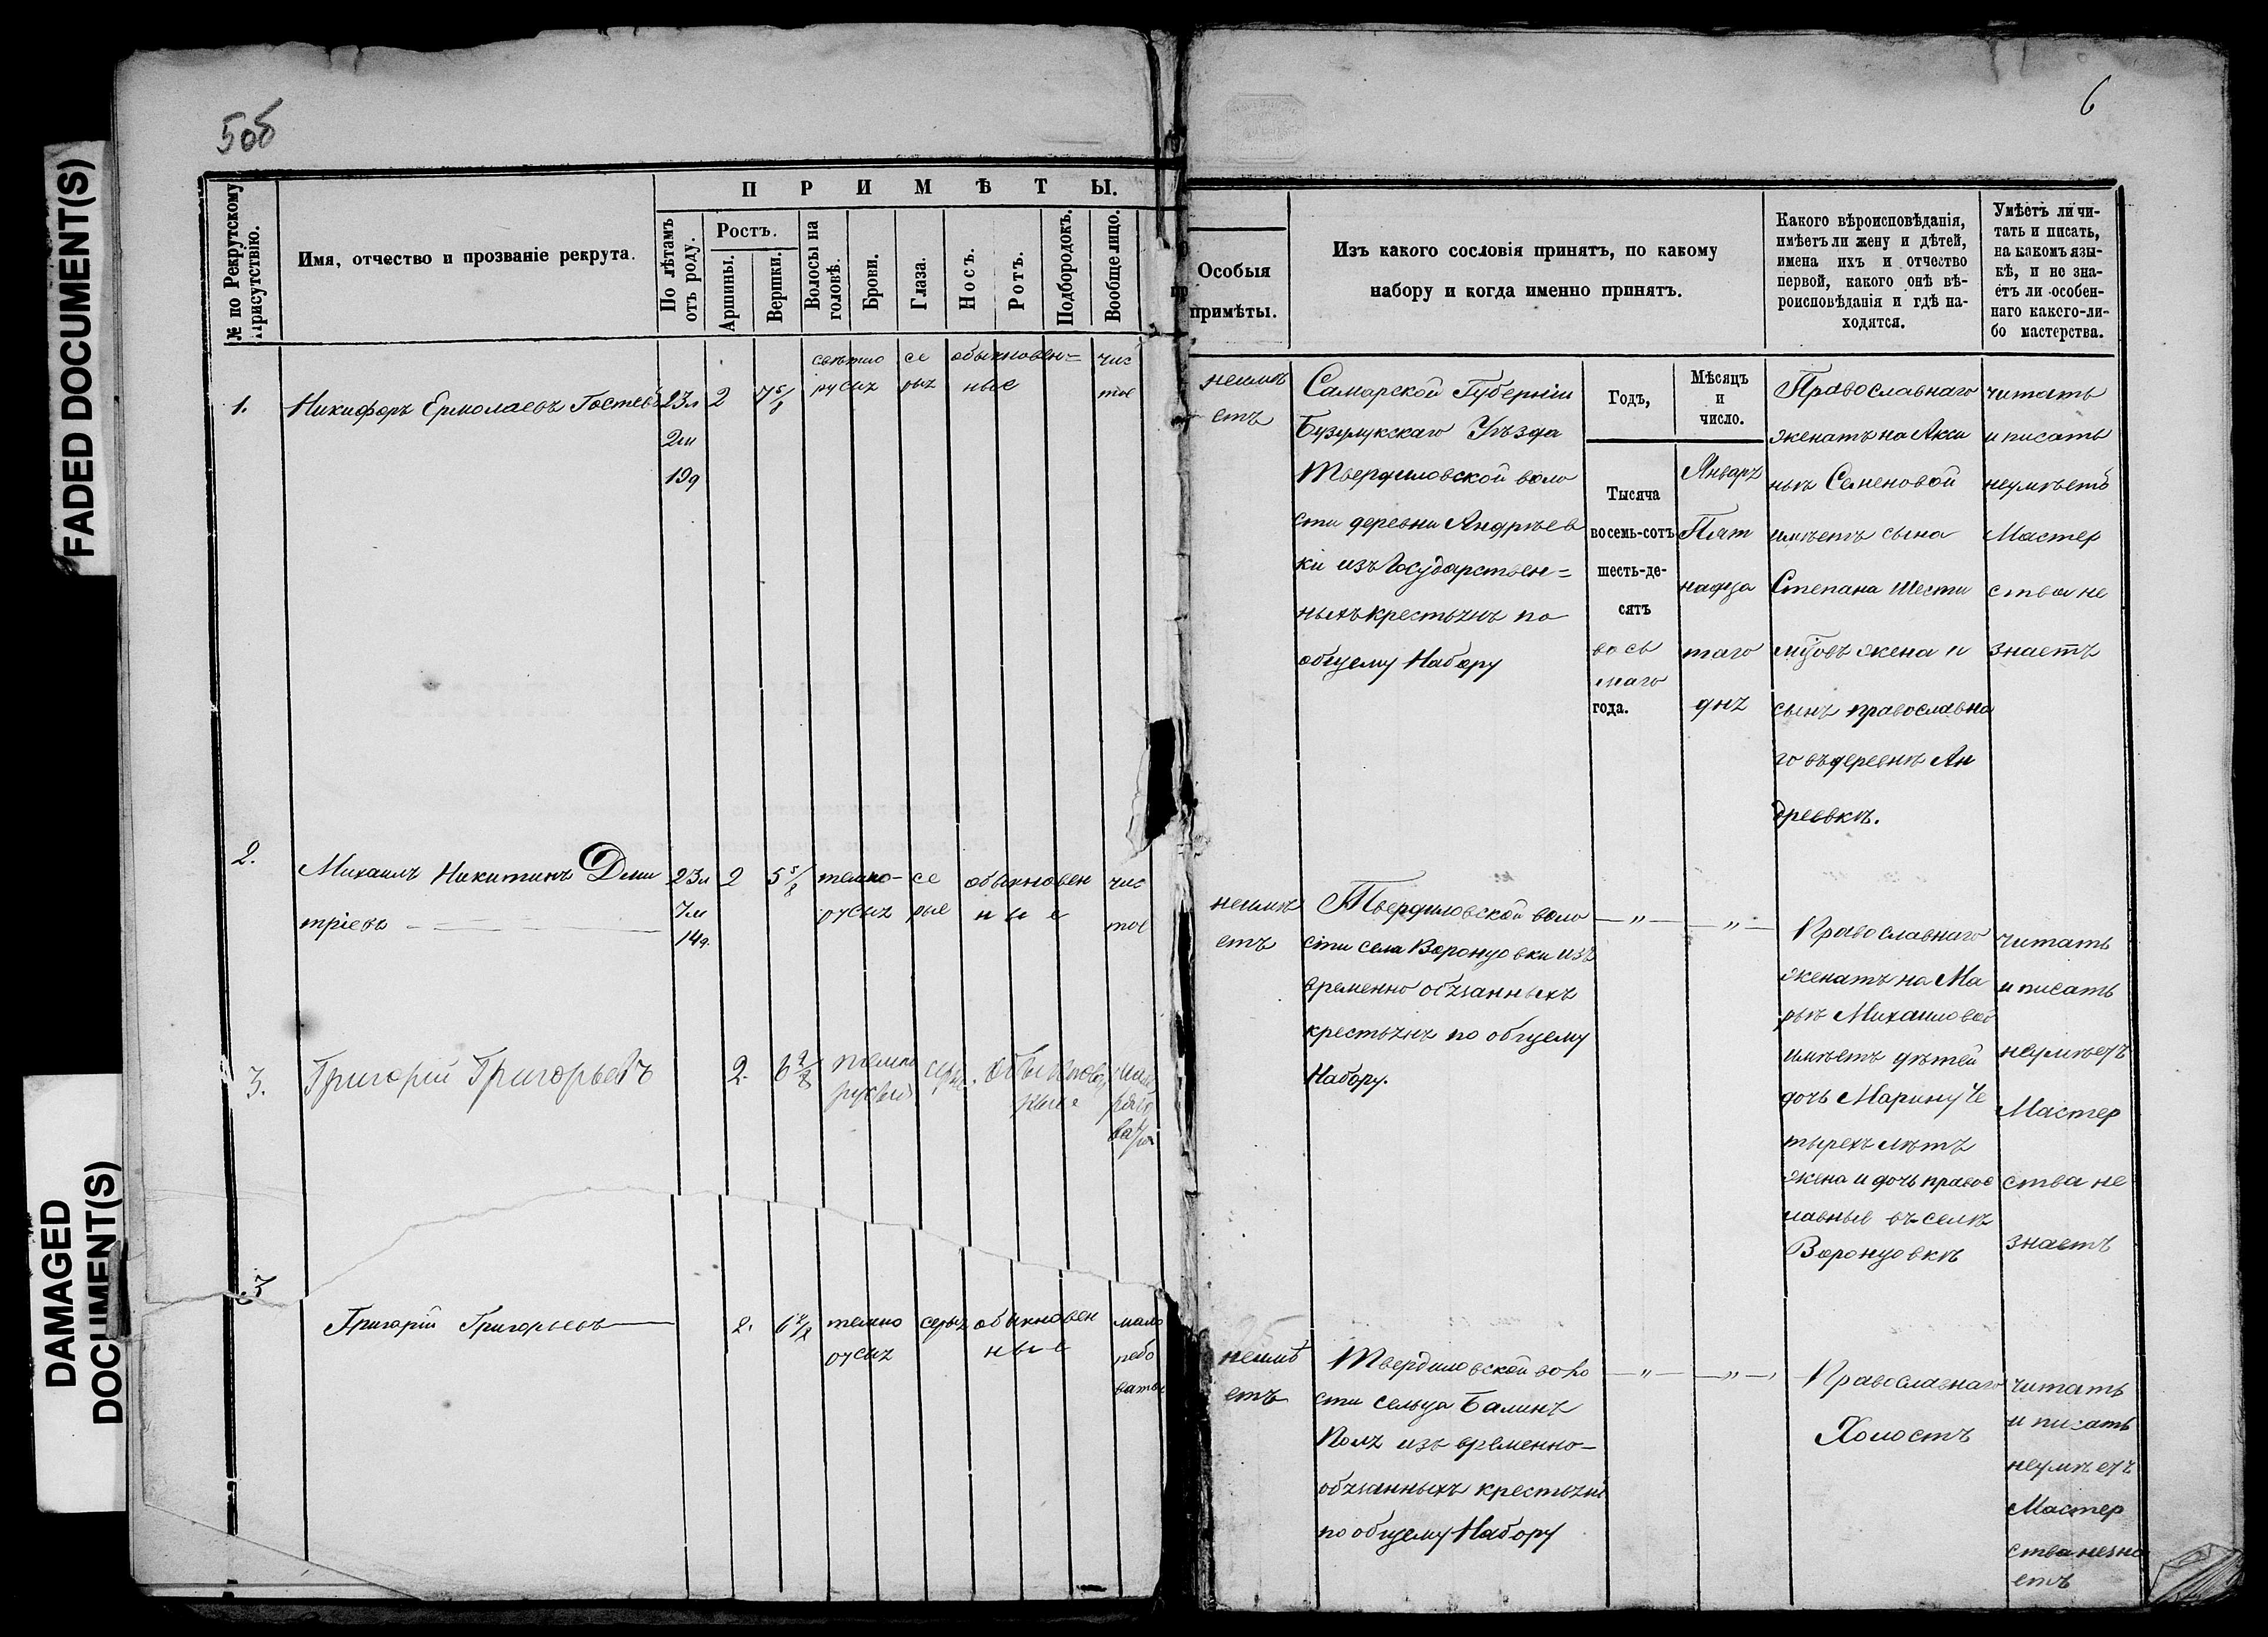 FADED DOCUMENT(S)
DAMAGED
DOCUMENT(S)
5об
6
№ по Рекрутскому Присутствію.
Имя, отчество и прозваніе рекрута.
ПРИМѢТЫ.
По лѣтамъ отъ роду.
Ростъ.
Аршины.
Вершки.
Волосы на головѣ.
Брови.
Глаза.
Носъ.
Ротъ.
Подбородокъ.
Вообще лицо.
Особыя
примѣты.
Изъ какого сословія принятъ, по какому
набору и когда именно принятъ.
Какого вѣроисповѣданія,
имѣетъ ли жену и дѣтей,
имена ихъ и отчество
первой, какого онѣ вѣ-
роисповѣданія и гдѣ на-
ходятся.
Умѣетъ ли чи-
тать и писать,
на какомъ язы-
кѣ, и не зна-
етъ ли особен-
наго какого-ли-
бо мастерства.
1.
Никифоръ Ермолаевъ Гостевъ
23л
2м
19д
2
7 5/8
свѣтло
русыя
се
рыя
обыкновен=
ные
чис
тое
неимѣ
етъ
Самарской Губерніи
Бузулукскаго Уѣзда
Твердиловской воло
сти деревни Андрѣев
ки изъ Государствен=
ныхъ крестьянъ по
общему Набору
Годъ,
Тысяча
восемь-сотъ
шесть-де-
сятъ
вось
маго
года.
Мѣсяцъ
и
число.
Января
Пят
надца
таго
дня
Православнаго
женатъ на Акси
ньѣ Семеновой
имѣетъ сына
Степана Шести
жена и
сынъ православна
го въ деревнѣ Ан
дреевкѣ.
читать
и писать
неумѣетъ
Мастер
ства не
знаетъ
2.
Михаилъ Никитинъ Дми
тріевъ
23л
7м
14д.
2
5 5/8
темно-
русыя
се
рые
обыкновен
ные
чис
тое
неимѣ
етъ
Твердиловской воло
сти села Воронцовки изъ
временно обязанныхъ
крестьянъ по общему
Набору.
—„—
—„—
Православнаго
женатъ на Ма
рьѣ Михаиловой
имѣетъ дѣтей
дочь Марину Че
тырехъ лѣтъ
жена и дочь правос
лавные въ селѣ
Воронцовкѣ
читать
и писать
неумѣетъ
Мастер
ства не
знаетъ
3.
Григорій Григорьевъ
2.
темно
3
Григорій Григорьевъ
2.
6 2/8
темно
русыя
серыя
обыкновен
ные
мало
ребо
ватое
неимѣ
етъ
Твердиловской воло
сти сельца Балинъ
Колъ изъ временно-
обязанныхъ крестьянъ
по общему Набору
—„—
—„—
Православнаго
Холостъ
читать
и писать
неумѣетъ
Мастер
ства незна
етъ